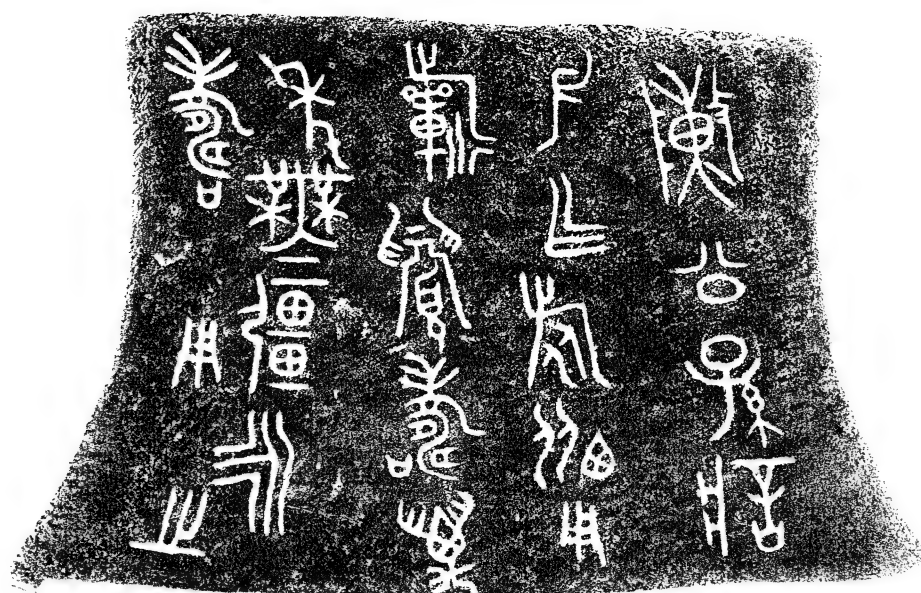 敶公孫
父乍旅用
祈眉壽萬
年無疆永
壽用之